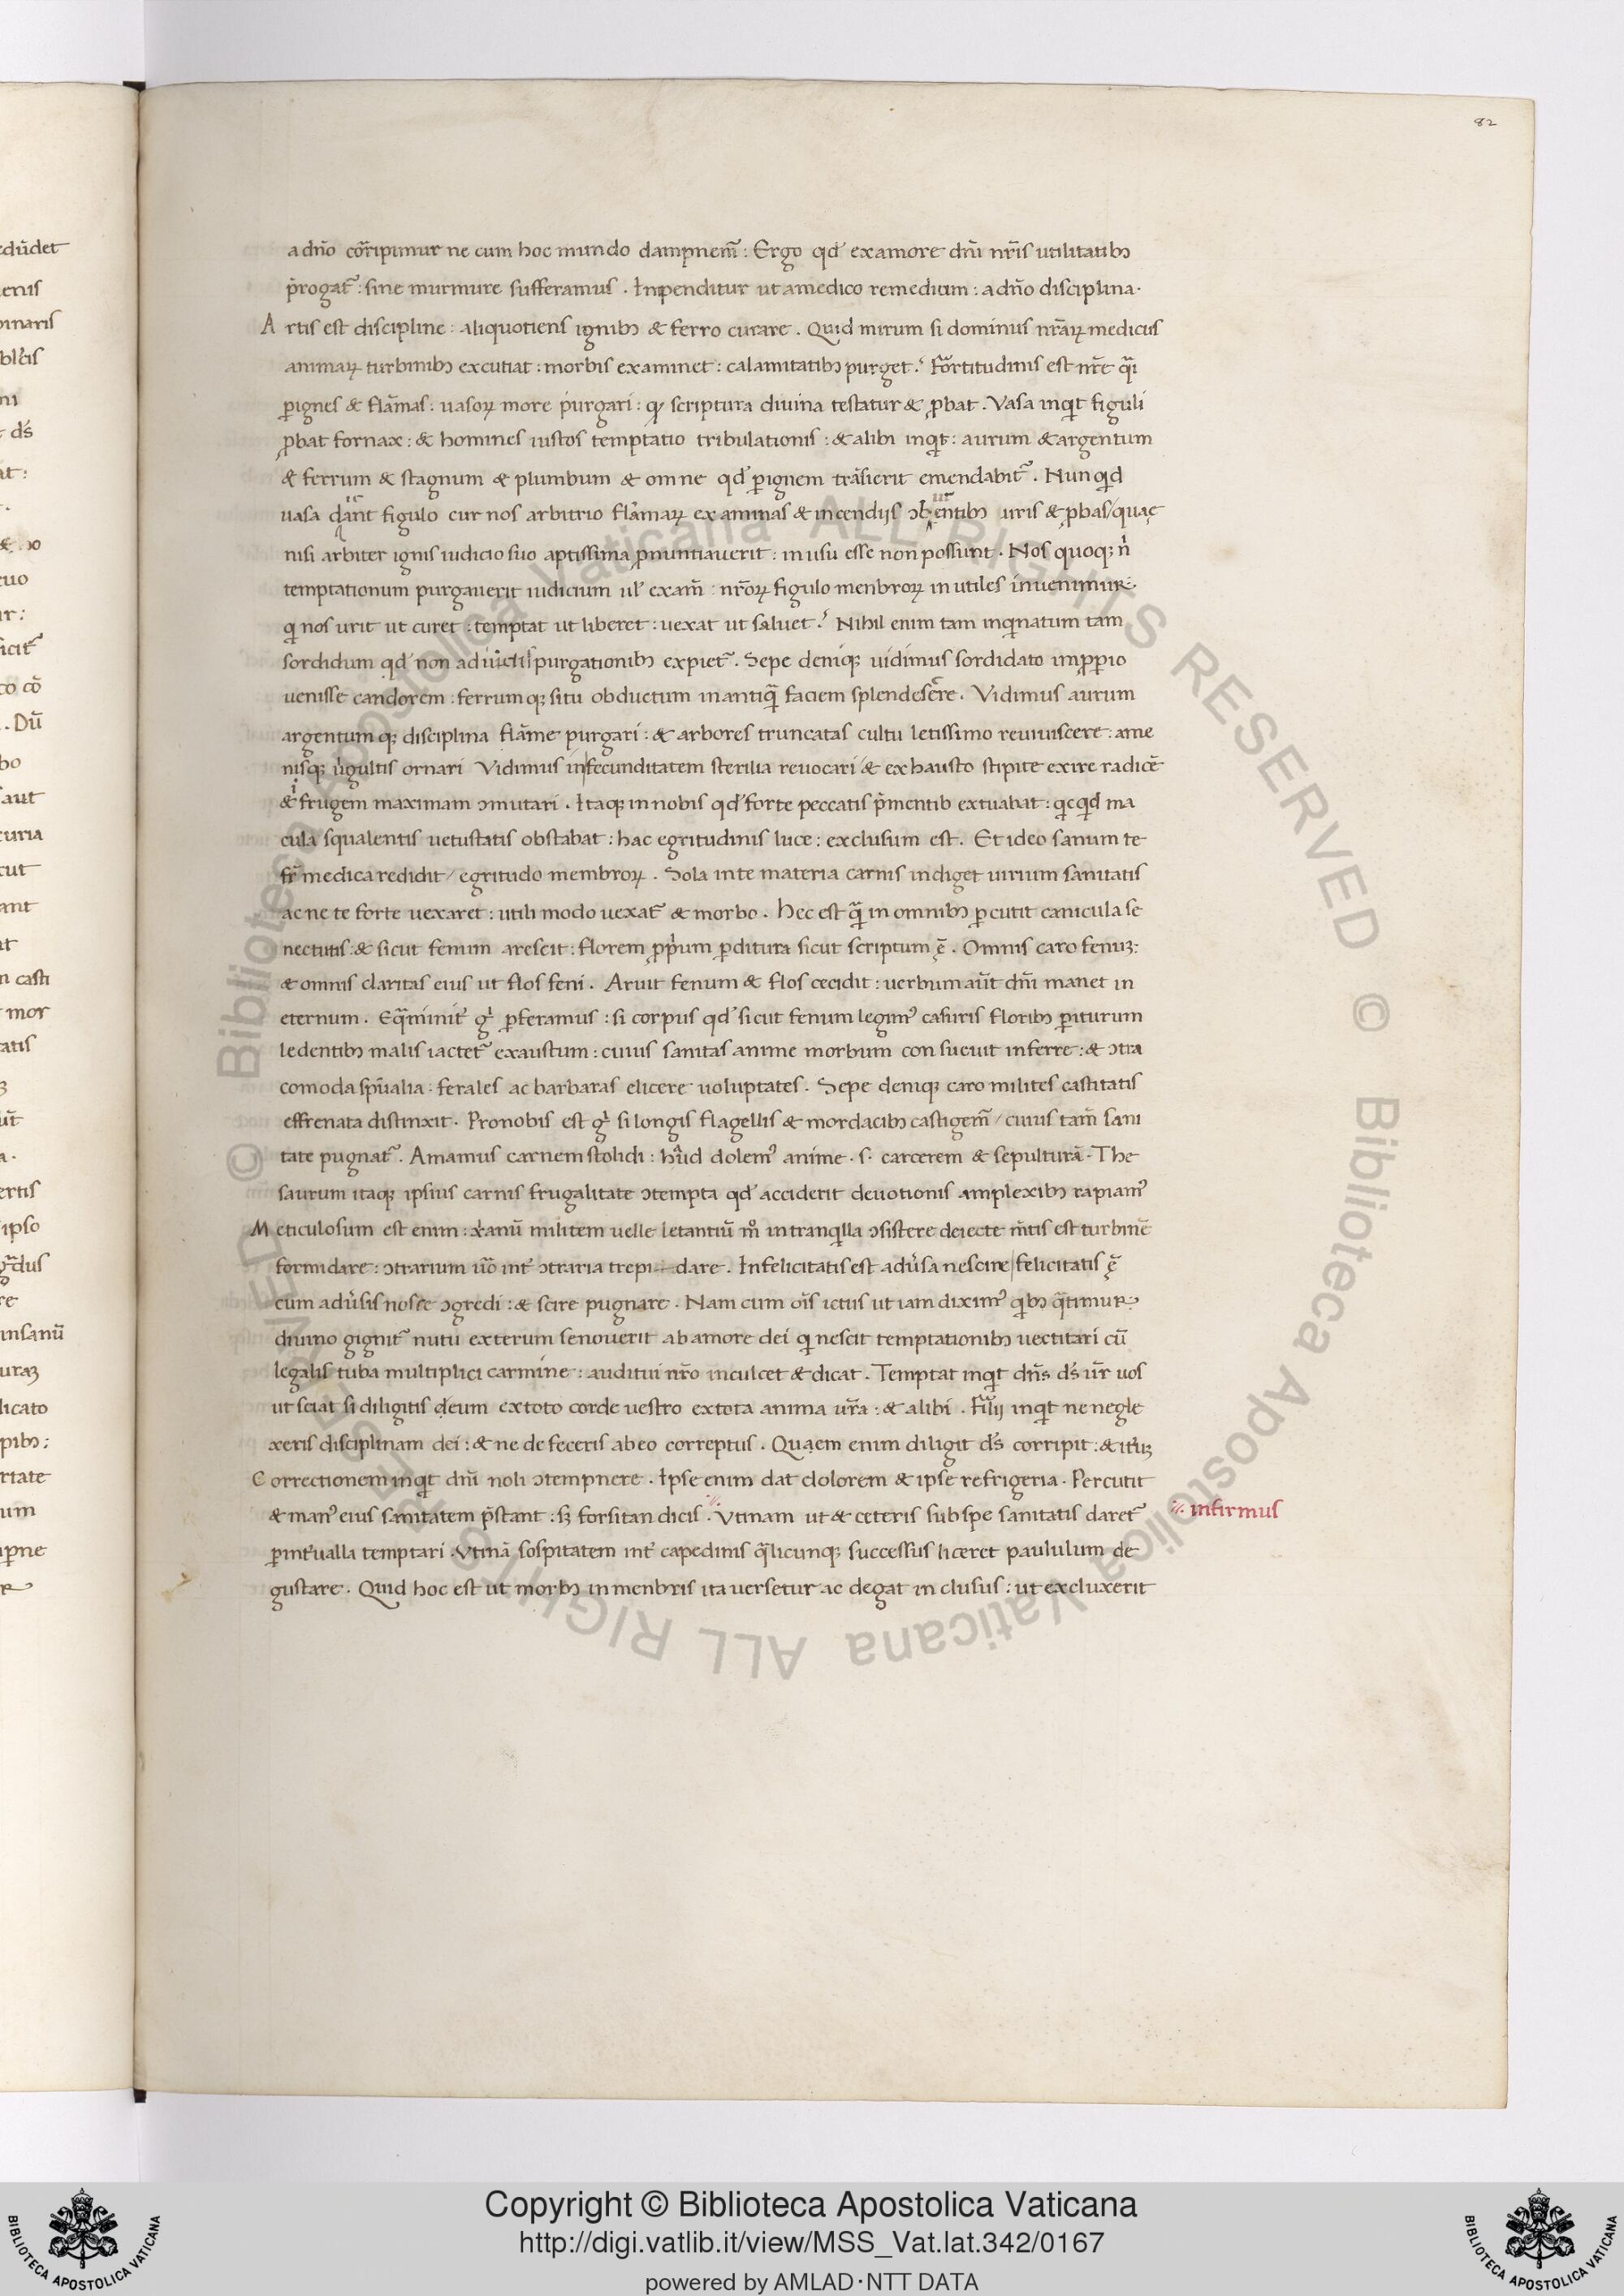 82
a dn̄o cor̄ripimur ne cum hoc mundo dampnem̄ : Ergo qd̓ ex amore dn̄i nr̄is utilitatibꝫ
p̓rogat̄ : sine murmure sufferamus . Inpenditur ut a medico remedium : a dn̄o disciplina .
Artis est discipline : aliquotiens ignibꝫ & ferro curare . Quid mirum si dominus nr̄aꝝ medicus
animaꝝ turbinibꝫ excutiat : morbis examinet : calamitatibꝫ purget . Fortitudinis est nr̄e
ꝑ ignes & flām̄as : uasoꝝ more purgari : scriptura diuina testatur & ꝓbat . Vasa inqͥt figuli
ꝓbat fornax : & homines iustos temptatio tribulationis : & alibi inqͥt : aurum & argentum
& ferrum & stagnum & plumbum & omne qd̓ ꝑ ignem trāsierit emendabit̄ . Nunqͥd
uasa figulo cur nos arbitrio flām̄aꝝ examinas & incendijs uris & ꝓbas / quae
nisi arbiter ignis iudicio suo aptissima ꝓnuntiauerit : in usu esse non possunt . Nos quoqꝫ n̓
temptationum purgauerit iudicium ul̓ exam̄ : nr̄oꝝ figulo menbroꝝ inutiles inuenimur .
qͥ nos urit ut curet : temptat ut liberet : uexat ut saluet . Nihil enim tam inqͥnatum tam
sordidum qd̓ non purgationibꝫ expiet̄ . Sepe deniqꝫ uidimus sordidato
uenisse candorem : ferrumqꝫ situ obductum in antiqͣ faciem splendescere . Vidimus aurum
argentumqꝫ disciplina flām̄e purgari : & arbores truncatas cultu letissimo reuiuiscere : ame
nisqꝫ uͥrgultis ornari Vidimus in fecunditatem sterilia reuocari / & exhausto stipite exire radicē
& frugem maximam ɔmutari . Itaqꝫ in nobis qd̓ forte peccatis p̓mentibꝫ extuabat : qͥcqͥd ma
cula squalentis uetustatis obstabat : hac egritudinis luce : exclusum est . Et ideo sanum te
fr̄ medica redidit / egritudo membroꝝ . Sola in te materia carnis indiget uirium sanitatis
ac ne te forte uexaret : utili modo uexat̄ & morbo . Hec est qͣ in omnibꝫ ꝑcutit canicula se
nectutis : & sicut fenum arescit : florem ꝓp̓um ꝑditura sicut scriptum ē . Omnis caro fenuꝫ :
& omnis claritas eius ut flos feni . Aruit fenum & flos cecidit : uerbum aūt dn̄i manet in
eternum . Eqͣnimit̓ gͥ ꝑferamus : si corpus qd̓ sicut fenum legimꝰ floribꝫ ꝑiturum
ledentibꝫ malis iactet̄ exaustum : cuius sanitas anime morbum consueuit inferre : & ɔtra
comoda sp̄ualia : ferales ac barbaras elicere uoluptates . Sepe deniqꝫ caro milites castitatis
effrenata distinxit . Pro nobis est gͥ si longis flagellis & mordacibꝫ castigem̄ / cuius tam̄ sani
tate pugnat̄ . Amamus carnem stolidi : dolemꝰ anime . s . carcerem & sepulturā . The
saurum itaqꝫ ipsius carnis frugalitate ɔtempta qd̓ acciderit deuotionis amplexibꝫ rapiamꝰ
Meticulosum est enim : xr̄anū militem uelle letantiū mͦ in tranqͥlla ɔsistere deiecte m̄tis est turbinē
formidare : ɔtrarium uͦ int̓ ɔtraria trepidare . Infelicitatis est adu̓sa nescire / felicitatis ē
cum adu̓sis nosse ɔgredi : & scire pugnare . Nam cum ois̄ ictus ut iam diximꝰ qͥbꝫ qͣtimur
diuino gignit̄ nutu exterum se nouerit ab amore dei qͥ nescit temptationibꝫ uectitari cū
legalis tuba multiplici carmine : auditui nr̄o inculcet & dicat . Temptat inqͥt dn̄s ds̄ ur̄ uos
ut sciat si diligitis deum ex toto corde uestro ex tota anima ur̄a : & alibi . Filii inqͥt ne negle
xeris disciplinam dei : & ne defeceris ab eo correptus . Quaem enim diligit ds̄ corripit : & it̓uꝫ
Correctionem inqͥt dn̄i noli ɔtempnere . Ipse enim dat dolorem & ipse refrigeria . Percutit
& manꝰ eius sanitatem p̄stant : sꝫ forsitan dicis . Vtinam ut & ceteris sub spe sanitatis daret̄ infirmus
ꝑ int̓ualla temptari . Vtinā sospitatem int̓capedinis qͣlicunqꝫ successus liceret paululum de
gustare . Quid hoc est ut morbꝫ in menbris ita uersetur ac degat inclusus : ut excluxerit
Copyright © Biblioteca Apostolica Vaticana
http://digi.vatlib.it/view/MSS_Vat.lat.342/0167
powered by AMLAD·NTT DATA
© Biblioteca Apostolica Vaticana ALL RIGHTS RESERVED © Biblioteca Apostolica Vaticana ALL RIGHTS RESERVED
BIBLIOTECA APOSTOLICA VATICANA
BIBLIOTECA APOSTOLICA VATICANA